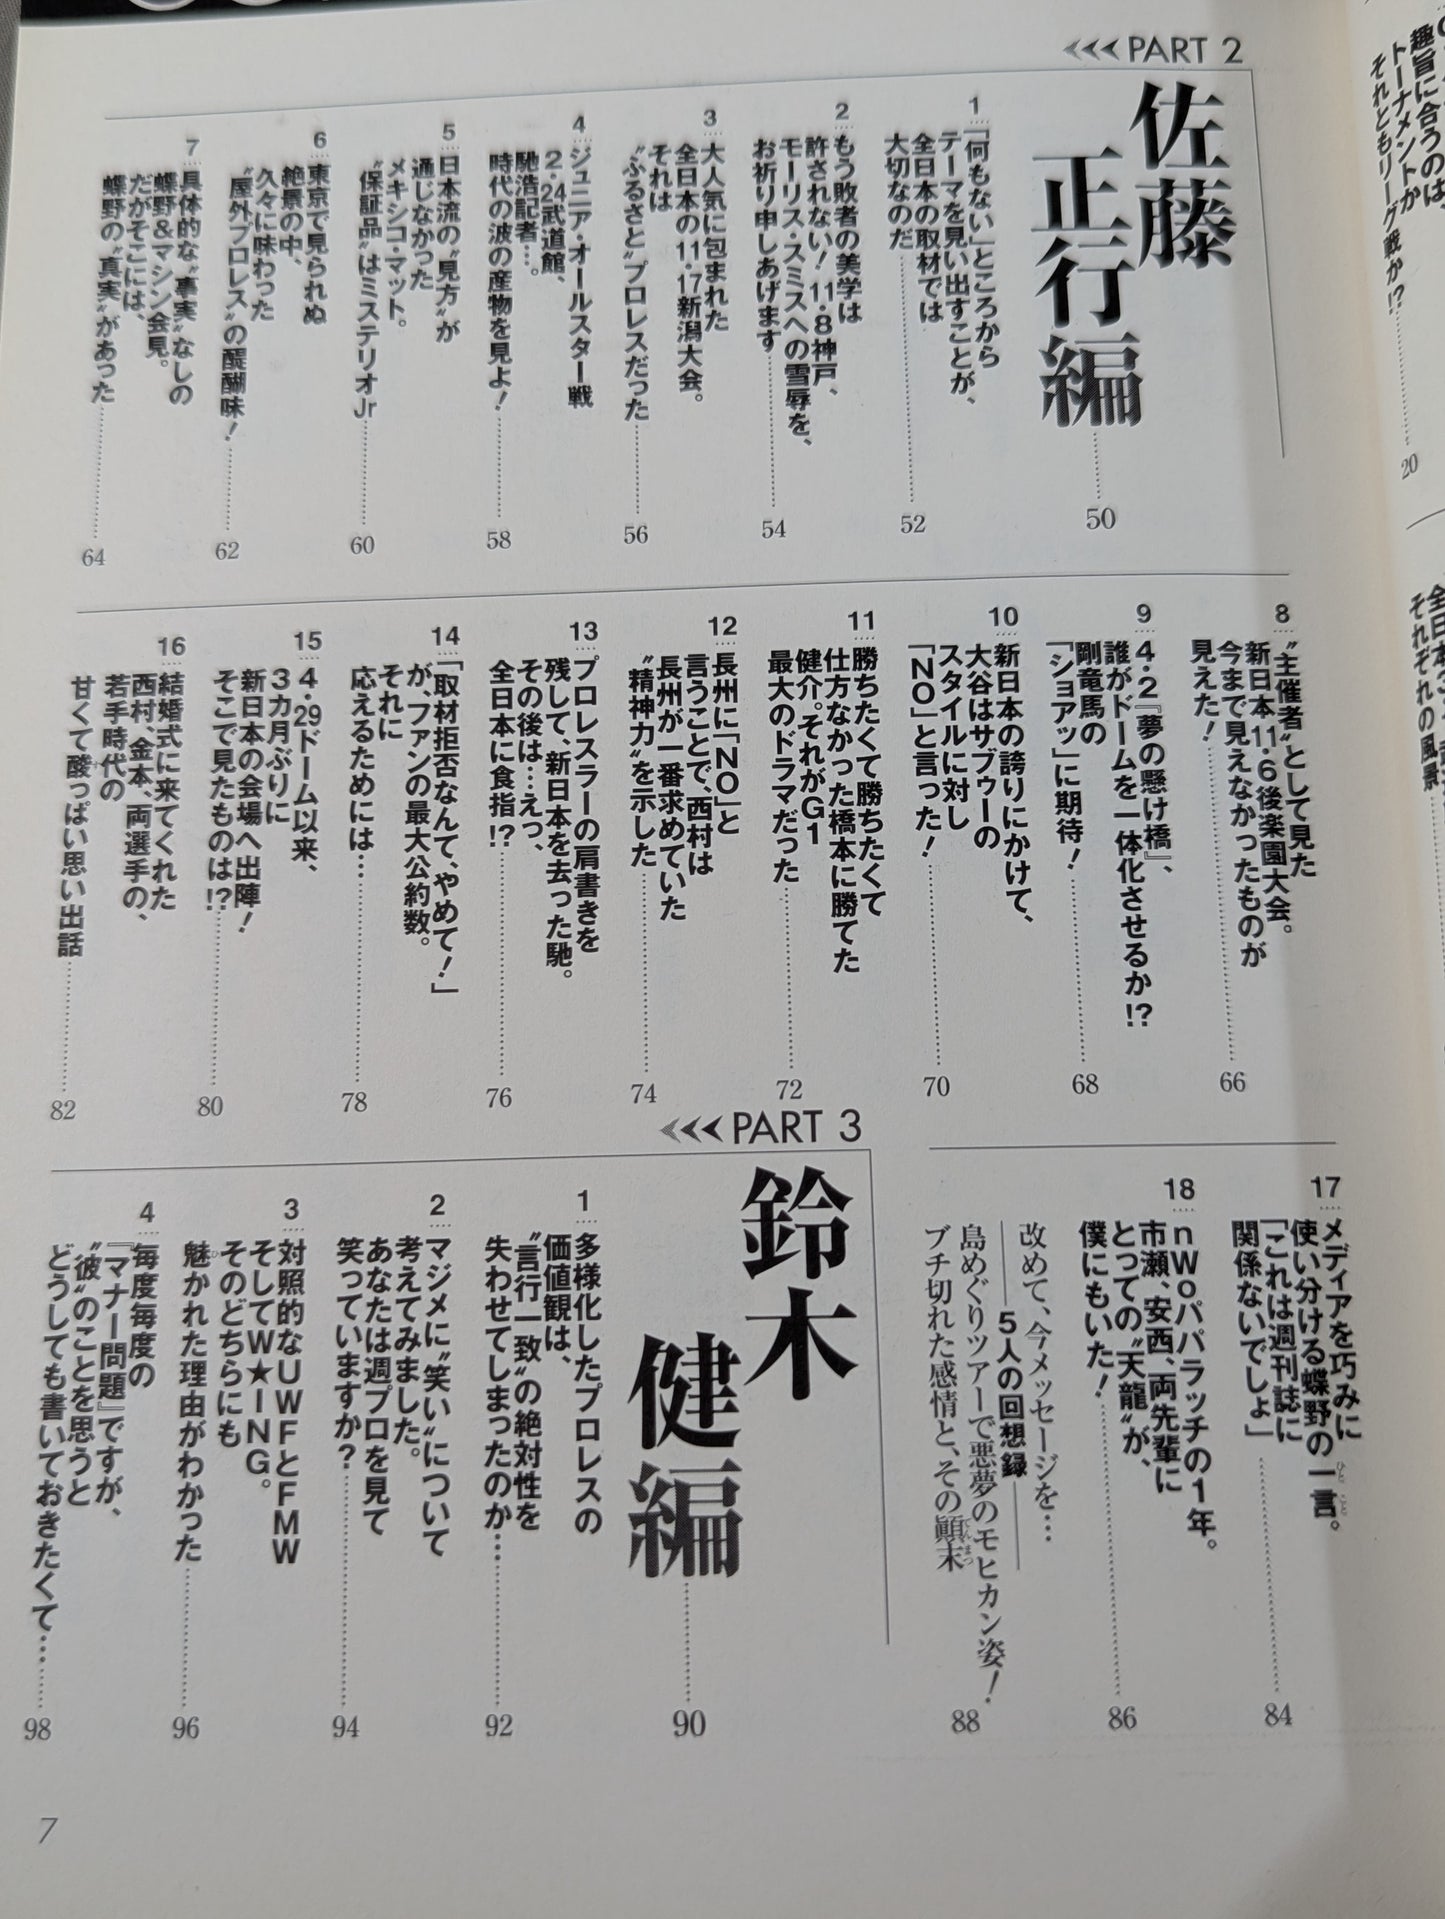 PART 2
佐藤
正行編
50
1
「何もない」ところから
テーマを見い出すことが、
全日本の取材では
大切なのだ
52
2
もう敗者の美学は
許されない！ 11・8神戸、
モーリス・スミスへの雪辱を、
お祈り申しあげます
54
3
大人気に包まれた
全日本の11・17新潟大会。
それは
〝ふるさと〟プロレスだった
56
4
ジュニア・オールスター戦
2・24武道館、
馳浩記者…。
時代の波の産物を見よ！
58
5
日本流の〝見方〟が
通じなかった
メキシコ・マット。
〝保証品〟はミステリオJr
60
6
東京で見られぬ
絶景の中、
久々に味わった
〝屋外プロレス〟の醍醐味！
62
7
具体的な〝事実〟なしの
蝶野＆マシン会見。
だがそこには、
蝶野の〝真実〟があった
64
8
〝主催者〟として見た
新日本11・6後楽園大会。
今まで見えなかったものが
見えた！
66
9
4・2『夢の懸け橋』、
誰がドームを一体化させるか!?
剛竜馬の
「ショアッ」に期待！
68
10
新日本の誇りにかけて、
大谷はサブゥーの
スタイルに対し
「NO」と言った！
70
11
勝ちたくて勝ちたくて
仕方なかった橋本に勝てた
健介。それがG1
最大のドラマだった
72
12
長州に「NO」と
言うことで、西村は
長州が一番求めていた
〝精神力〟を示した
74
13
プロレスラーの肩書きを
残して、新日本を去った馳。
その後は…えっ、
全日本に食指!?
76
14
「取材拒否なんて、やめて！」
が、ファンの最大公約数。
それに
応えるためには…
78
15
4・29ドーム以来、
3カ月ぶりに
新日本の会場へ出陣！
そこで見たものは!?
80
16
結婚式に来てくれた
西村、金本、両選手の、
若手時代の
甘くて酸っぱい思い出話
82
17
メディアを巧みに
使い分ける蝶野の一言。
ひとこと
「これは週刊誌に
関係ないでしょ」
84
18
nWoパパラッチの1年。
市瀬、安西、両先輩に
とっての〝天龍〟が、
僕にもいた！
86
改めて、今メッセージを…
5人の回想録
島めぐりツアーで悪夢のモヒカン姿！
ブチ切れた感情と、その顚末
てんまつ
88
PART 3
鈴木
健編
90
1
多様化したプロレスの
価値観は、
〝言行一致〟の絶対性を
失わせてしまったのか…
92
2
マジメに〝笑い〟について
考えてみました。
あなたは週プロを見て
笑っていますか？
94
3
対照的なUWFとFMW
そしてW★ING。
そのどちらにも
魅かれた理由がわかった
ひ
96
4
毎度毎度の
『マナー問題』ですが、
〝彼〟のことを思うと
どうしても書いておきたくて…
98
7
趣旨に合うのは、
トーナメントか
それともリーグ戦か!?
20
それぞれの風景